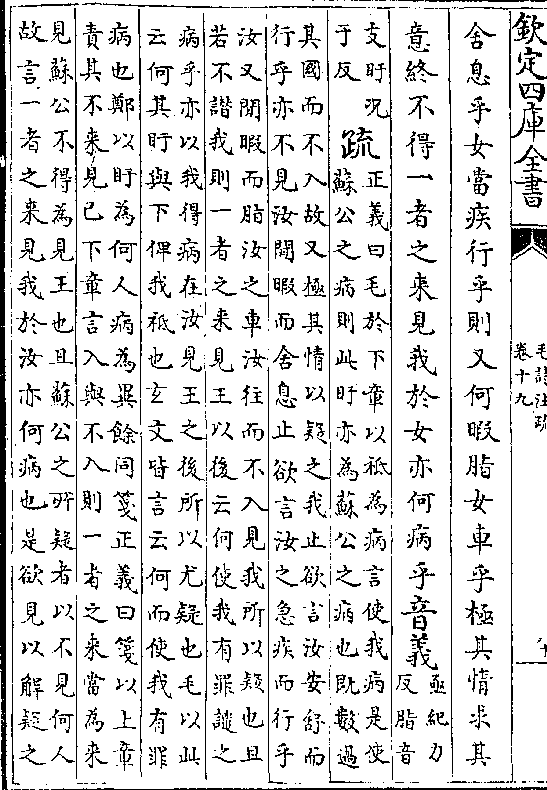 欽定四庫全書
毛詩注疏
卷十九
舍息乎女當疾行乎則又何暇脂女車乎極其情求其
意終不得一者之來見我於女亦何病乎音義
亟紀力
反脂音
支盱况
于反
疏
正義曰毛於下章以祗為病言使我病是使
蘇公之病則此盱亦為蘇公之病也既數過
其國而不入故又極其情以疑之我止欲言汝安舒而
行乎亦不見汝閒暇而舍息止欲言汝之急疾而行乎
汝又閒暇而脂汝之車汝往而不入見我所以疑也且
若不譖我則一者之来見王以後云何使我有罪譴之
病乎亦以我得病在汝見王之後所以尤疑也毛以此
云何其盱與下俾我祗也𤣥文皆言云何而使我有罪
病也鄭以盱為何人病為異餘同箋正義曰箋以上章
責其不来見已下章言入與不入則一者之来當為来
見蘇公不得為見王也且蘇公之所疑者以不見何人
故言一者之来見我於汝亦何病也是欲見以解疑之